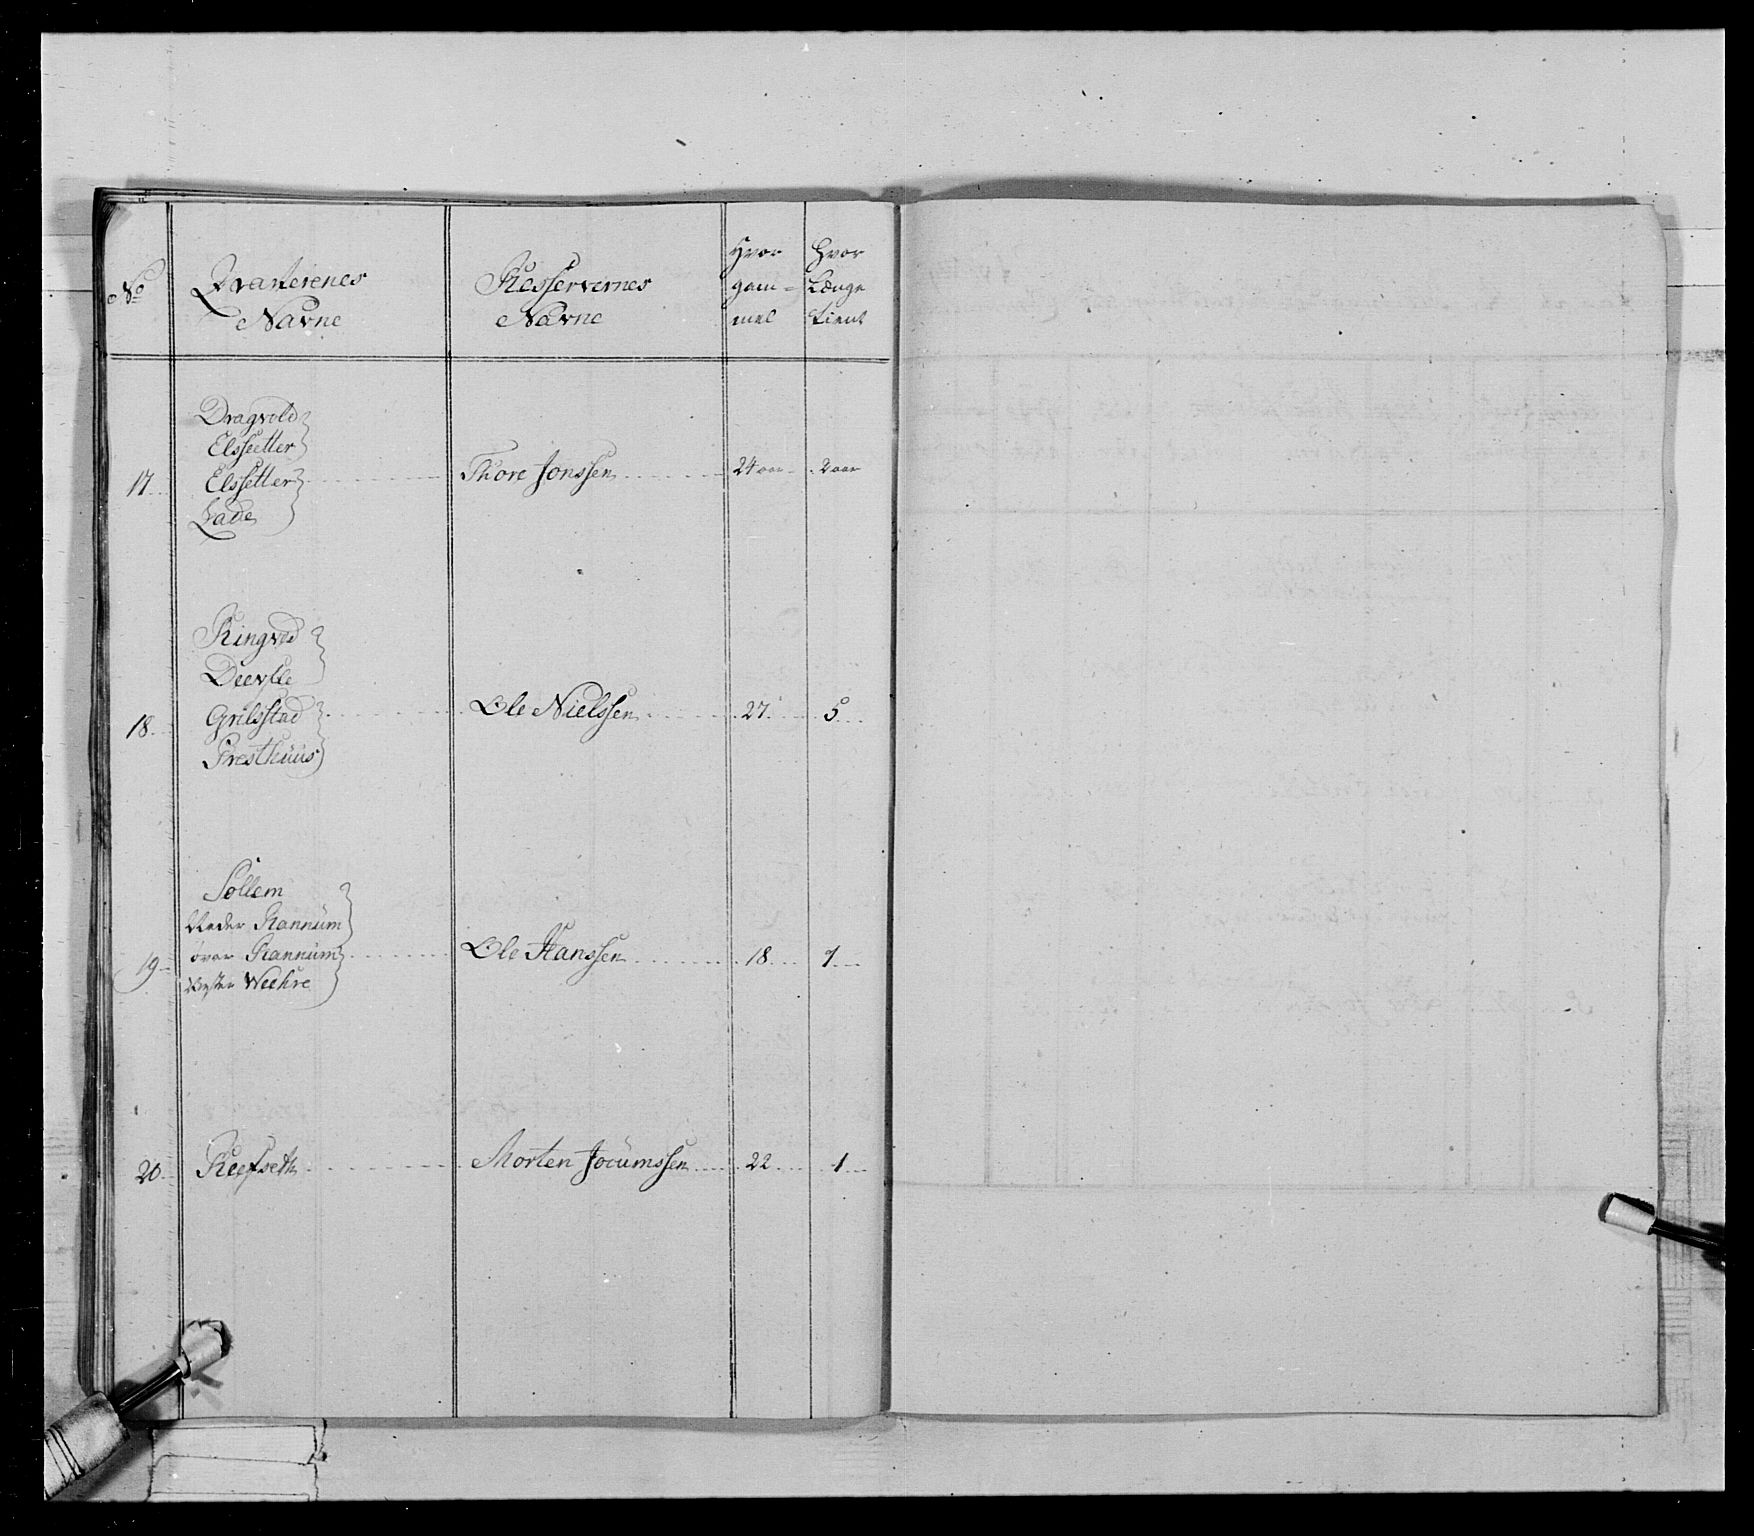 No
Qvarterenes
Navne
Resservernes
Navne
Hvor
gam=
mel
Hvor
Længe
tient
17
Dragvold
Elssetter
Elssetter
Lade
Thore Jonssen
24 aar
2 aar
18
Ringved
Deevlle
Grilsstad
Presthuus
Ole Nielssen
27
5
19
Sollem
Neder Rannum
över Rannum
Vester Weehre
Ole Hanssen
18
1
20
Reefseth
Morten Jocumssen
22
1